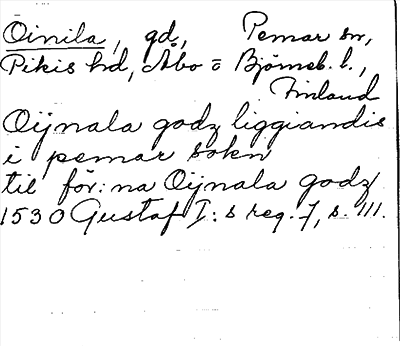 Öinila, gd, Pemar sn,
Pikis hd, Åbo o Björneb. l.,
Finland
Oijnala godz liggiandis
i pemar sokn
til för: na Oijnala godz
1530 Gustaf I: s reg. 7, s. 111.